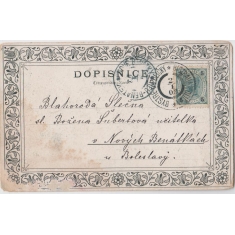 DOPISNICE
Blahorodá Slečna
sl. Božena Šubertová učitelka
v Nových Benátkách
u Boleslavi